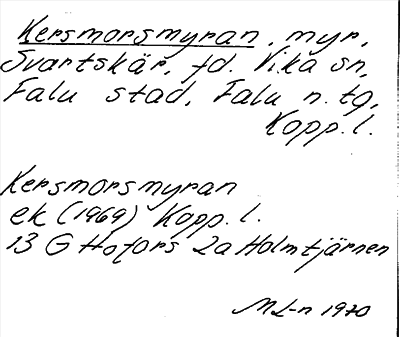 Kersmorsmyran, myr,
Svartskär, fd. Vika sn,
Falu stad, Falu n. tg,
Kopp. l.
Kersmorsmyran
ek (1969) Kopp. l.
13 G Hofors 2a Holmtjärnen
ML-n 1970